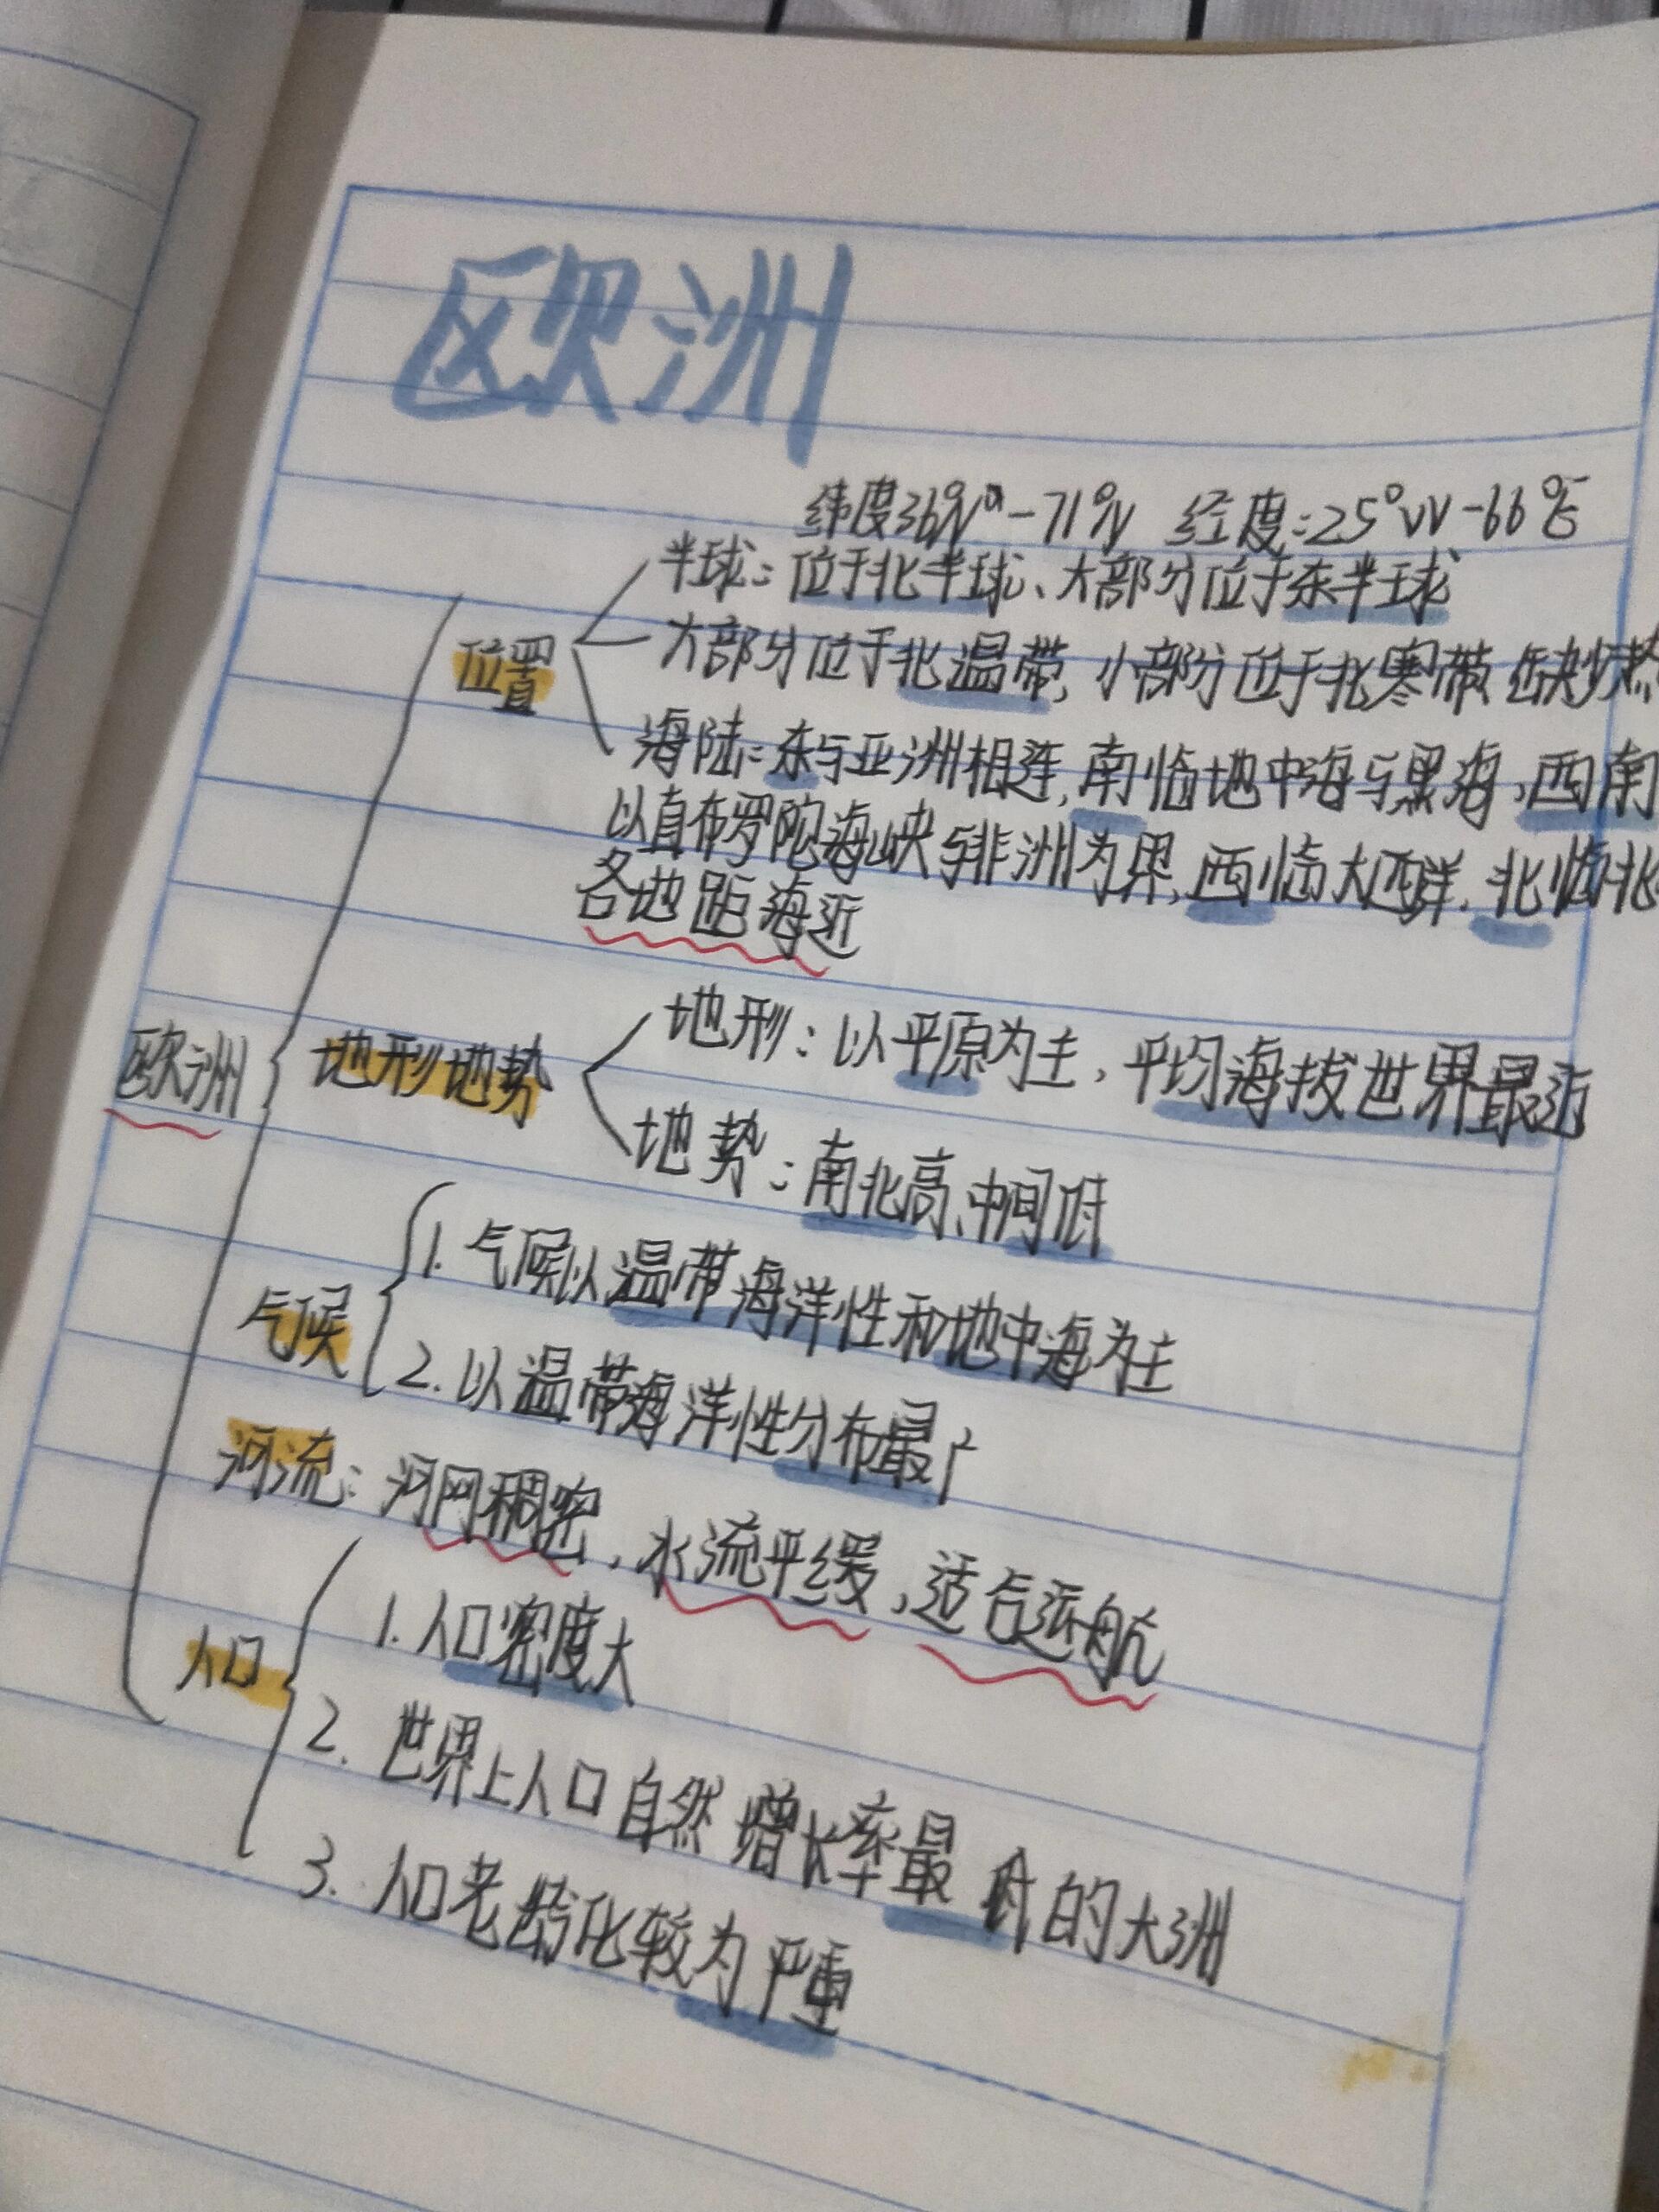 欧洲
纬度36°N-71°N 经度:25°W-66°E
半球:位于北半球、大部分位于东半球
位置
大部分位于北温带,小部分位于北寒带 缺少热
海陆:东与亚洲相连,南临地中海与黑海,西南
以直布罗陀海峡与非洲为界,西临大西洋,北临北
各地距海近
欧洲
地形地势
地形:以平原为主,平均海拔世界最近
地势:南北高、中间低
气候
1.气候以温带海洋性和地中海为主
2.以温带海洋性分布最广
河流:河网稠密,水流平缓,适合运航
人口
1.人口密度大
2.世界上人口自然增长率最低的大洲
3.人口老龄化较为严重